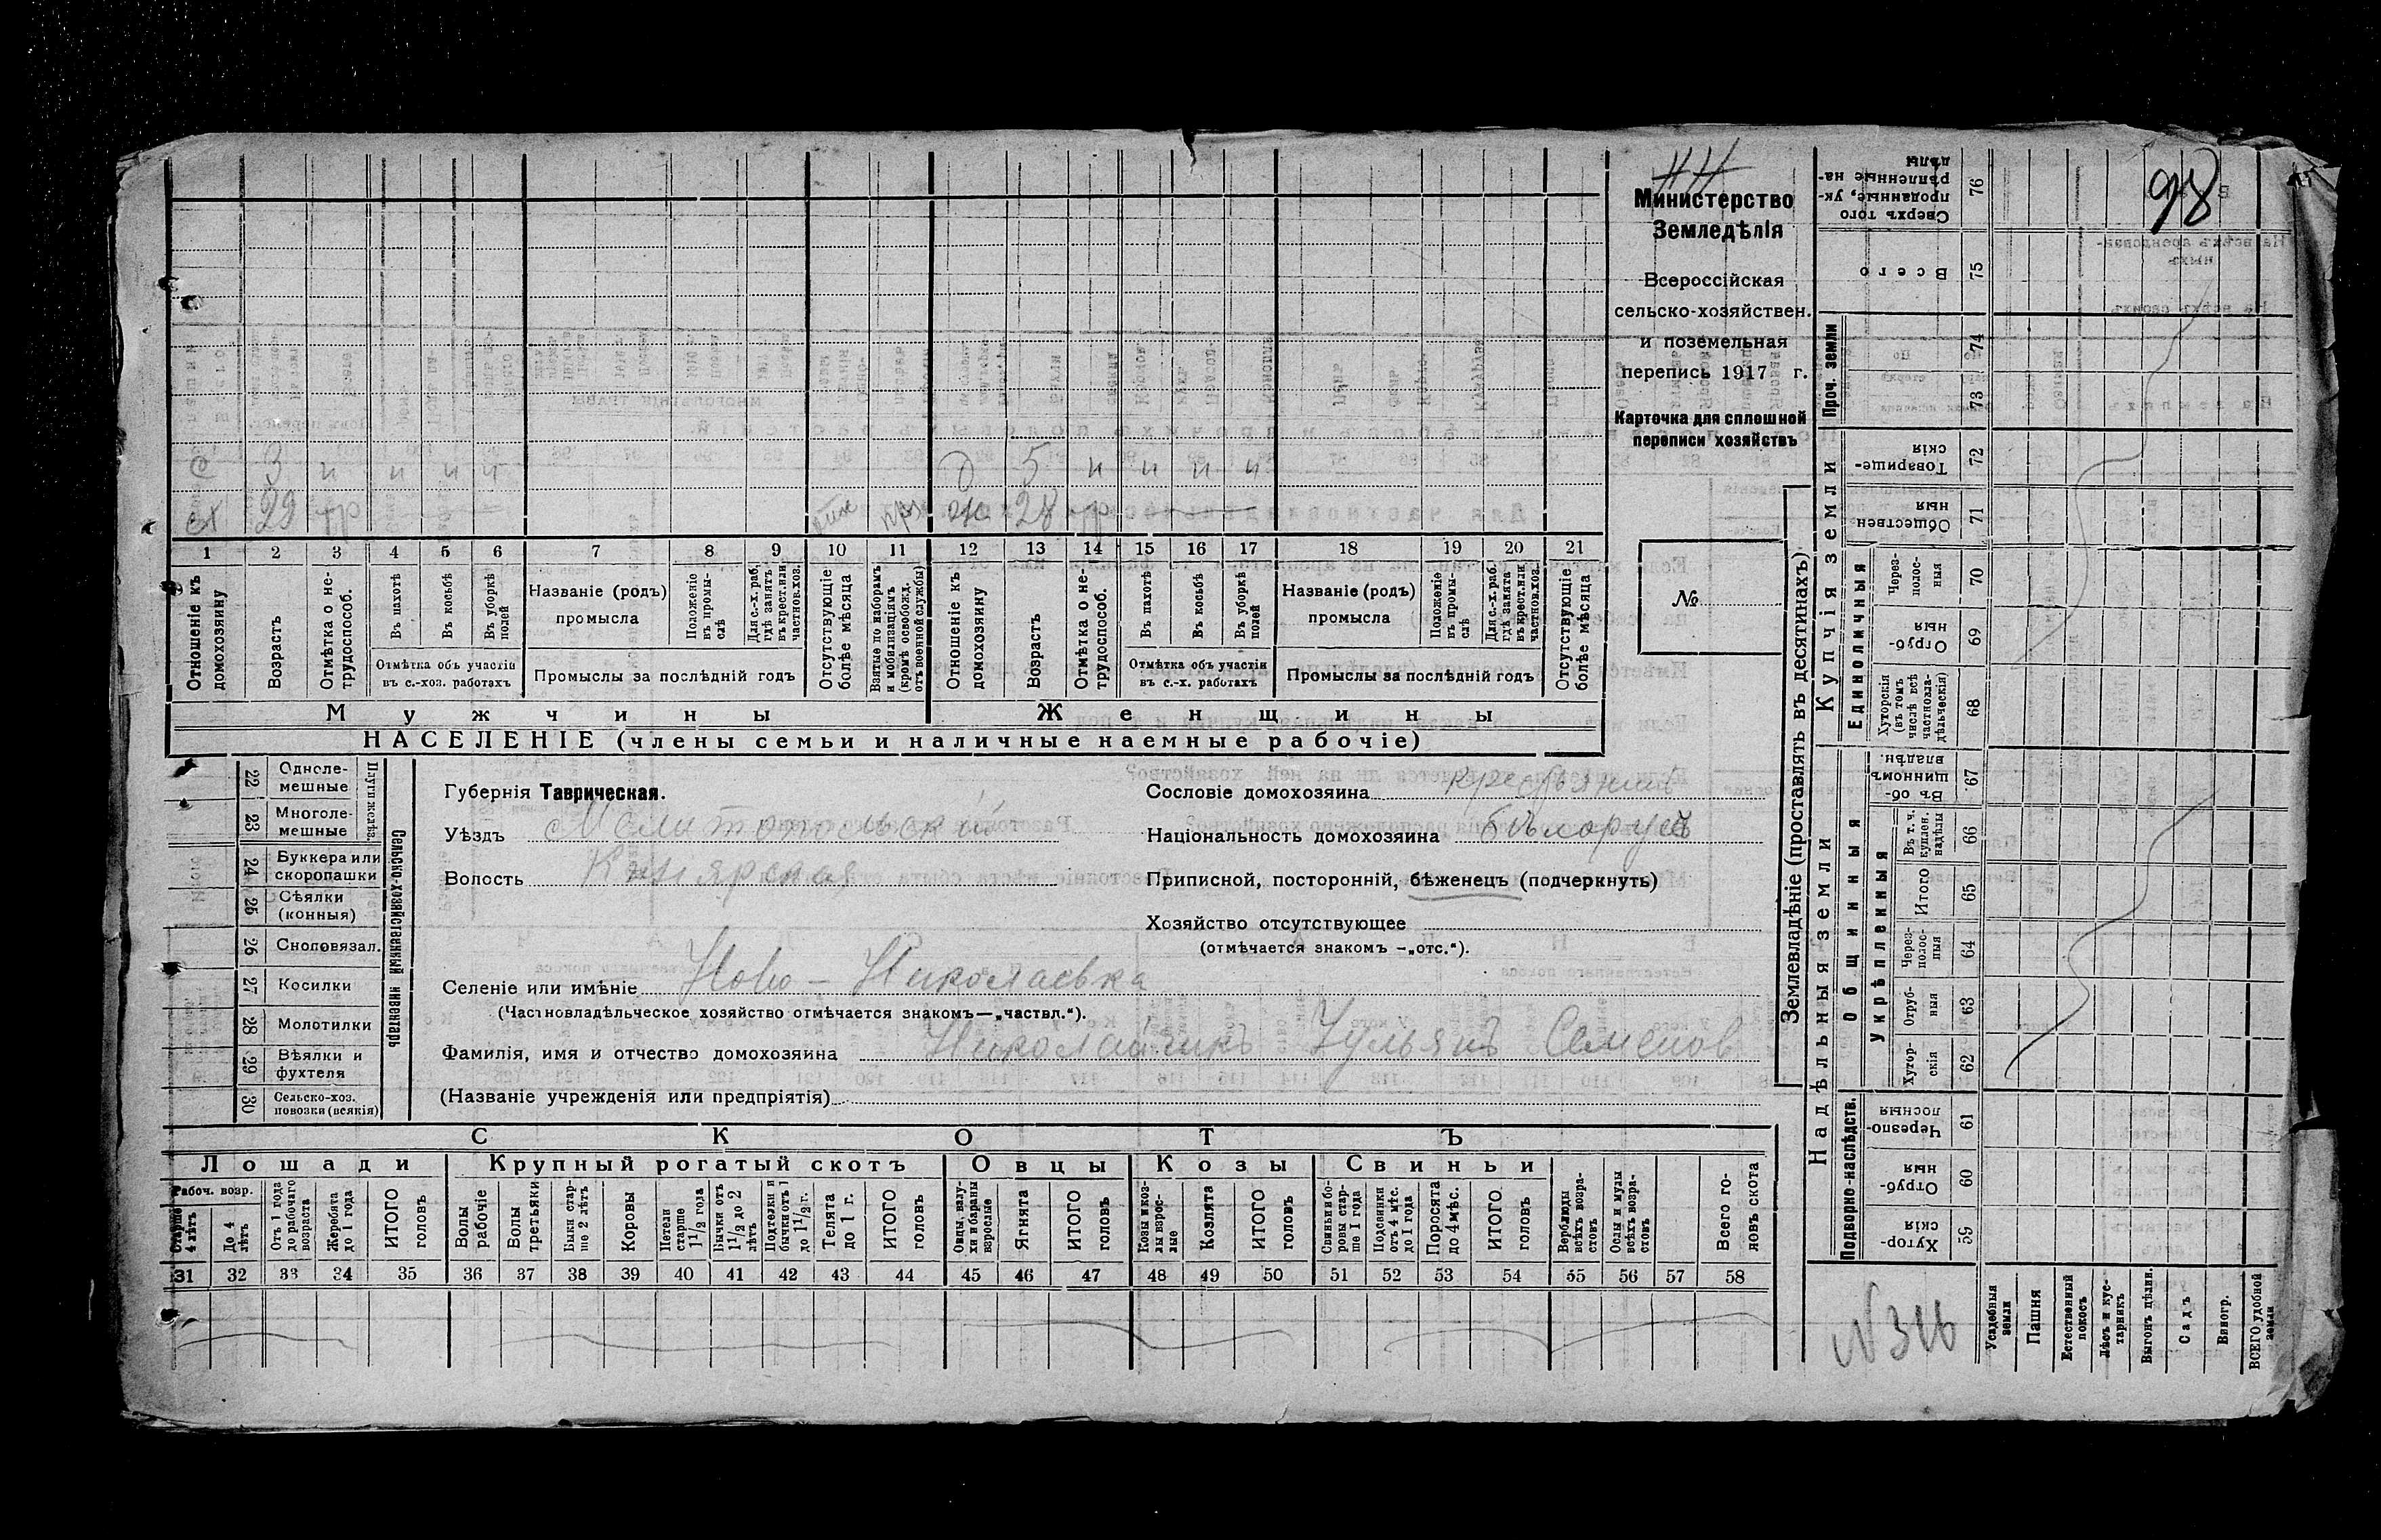 98
Министерство
Земледѣлія
Всероссійская
сельско-хозяйствен.
и поземельная
перепись 1917 г.
Карточка для сплошной
переписи хозяйствъ
№
с 3 н н н н д 5 н н н н
29 ж 28
1 2 3 4 5 6 7 8 9 10 11 12 13 14 15 16 17 18 19 20 21
Отношеніе къ домохозяину
Возрастъ
Отмѣтка о не-трудоспособ.
Въ пахотѣ
Въ косьбѣ
Въ уборкѣ полей
Отмѣтка объ участіи въ с.-хоз. работахъ
Названіе (родъ) промысла
Положеніе въ промы-слѣ
Для с.-х. раб. гдѣ занятъ въ крест. или частнов. хоз.
Промыслы за послѣдній годъ
Отсутствующіе болѣе мѣсяца
Взятые по наборамъ и мобилизаціямъ (кромѣ освобожд. отъ военной службы)
Отношеніе къ домохозяину
Возрастъ
Отмѣтка о не-трудоспособ.
Въ пахотѣ
Въ косьбѣ
Въ уборкѣ полей
Отмѣтка объ участіи въ с.-х. работахъ
Названіе (родъ) промысла
Положеніе въ промы-слѣ
Для с.-х. раб. гдѣ занята въ крест. или частнов. хоз.
Промыслы за послѣдній годъ
Отсутствующіе болѣе мѣсяца
Мужчины Женщины
НАСЕЛЕНІЕ (члены семьи и наличные наемные рабочіе)
Сельско-хозяйственный инвентарь
Плуги желѣз.
22 Одноле-мешные
23 Многоле-мешные
24 Буккера или скоропашки
25 Сѣялки (конныя)
26 Сноповязал.
27 Косилки
28 Молотилки
29 Вѣялки и фухтеля
30 Сельско-хоз. повозки (всякія)
Губернія Таврическая.
Уѣздъ Мелитопольскій
Волость
Сословіе домохозяина крестьянинъ
Національность домохозяина бѣлорусъ
Приписной, посторонній, бѣженецъ (подчеркнуть)
Хозяйство отсутствующее
(отмѣчается знакомъ -„отс.“).
Селеніе или имѣніе Ново - Николаевка
(Частновладѣльческое хозяйство отмѣчается знакомъ—„частвл.“).
Фамилія, имя и отчество домохозяина Николайчикъ Ульянъ Семенов
(Названіе учрежденія или предпріятія)
СКОТЪ
Лошади Крупный рогатый скотъ Овцы Козы Свиньи
Рабоч. возр.
Старше 4 лѣтъ
До 4 лѣтъ
Отъ 1 года до рабочаго возраста
Жеребята до 1 года
ИТОГО головъ
Волы рабочіе
Волы третьяки
Быки стар-ше 2 лѣтъ
Коровы
Нетели старше 1 1/2 года
Бычки отъ 1 1/2 до 2 лѣтъ
Подтелки и бычки отъ 1 до 1 1/2 г.
Телята до 1 г.
ИТОГО головъ
Овцы, валу-хи и бараны взрослые
Ягнята
ИТОГО головъ
Козы и коз-лы взрос-лые
Козлята
ИТОГО головъ
Свиньи и бо-ровы стар-ше 1 года
Подсвинки отъ 4 мѣс. до 1 года
Поросята до 4 мѣс.
ИТОГО головъ
Верблюды всѣхъ возра-стовъ
Ослы и мулы всѣхъ возра-стовъ
Всего го-ловъ скота
31 32 33 34 35 36 37 38 39 40 41 42 43 44 45 46 47 48 49 50 51 52 53 54 55 56 57 58
Землевладѣніе (проставлять въ десятинахъ)
Купчія земли
Надѣльныя земли
Проч. земли
Единоличныя
Общинныя
Укрѣпленныя
Подворно-наслѣдств.
Сверхъ того проданные, ук-рѣпленные на-дѣлы 76
Всего 75
74
73
Товарище-скія 72
Обществен ныя 71
Через-полос-ныя 70
Отруб-ныя 69
Хуторскія (въ томъ числѣ всѣ частновла-дѣльческія) 68
Въ об-щинномъ владѣн. 67
Въ т. ч. куплен. надѣлы 66
Итого 65
Через-полос-ныя 64
Отруб-ныя 63
Хутор-скія 62
Черезпо-лосныя 61
Отруб-ныя 60
Хутор-скія 59
Усадебныя земли
Пашня
Естественный покосъ
Лѣсъ и кус-тарникъ
Выгонъ цѣлин.
Садъ
Виногр.
ВСЕГО удобной земли
N 316